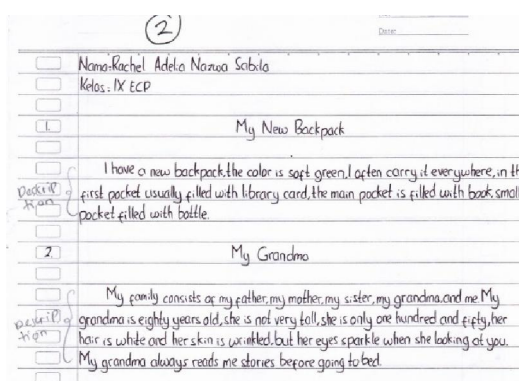 2
Date:
Nama: Rachel Adelia Nazwa Sabila
Kelas: IX ECP
1. My New Backpack
I have a new backpack. the color is soft green. I often carry it everywhere, in th
first pocket usually filled with library card, the main pocket is filled with book, small
pocket filled with bottle.
Deskrip
tion
2. My Grandma
My family consists of my father, my mother, my sister, my grandma. and me. My
grandma is eighty years old, she is not very tall, she is only one hundred and fifty, her
hair is white and her skin is wrinkled. but her eyes sparkle when she looking at you.
My grandma always reads me stories before going to bed.
Descrip
tion